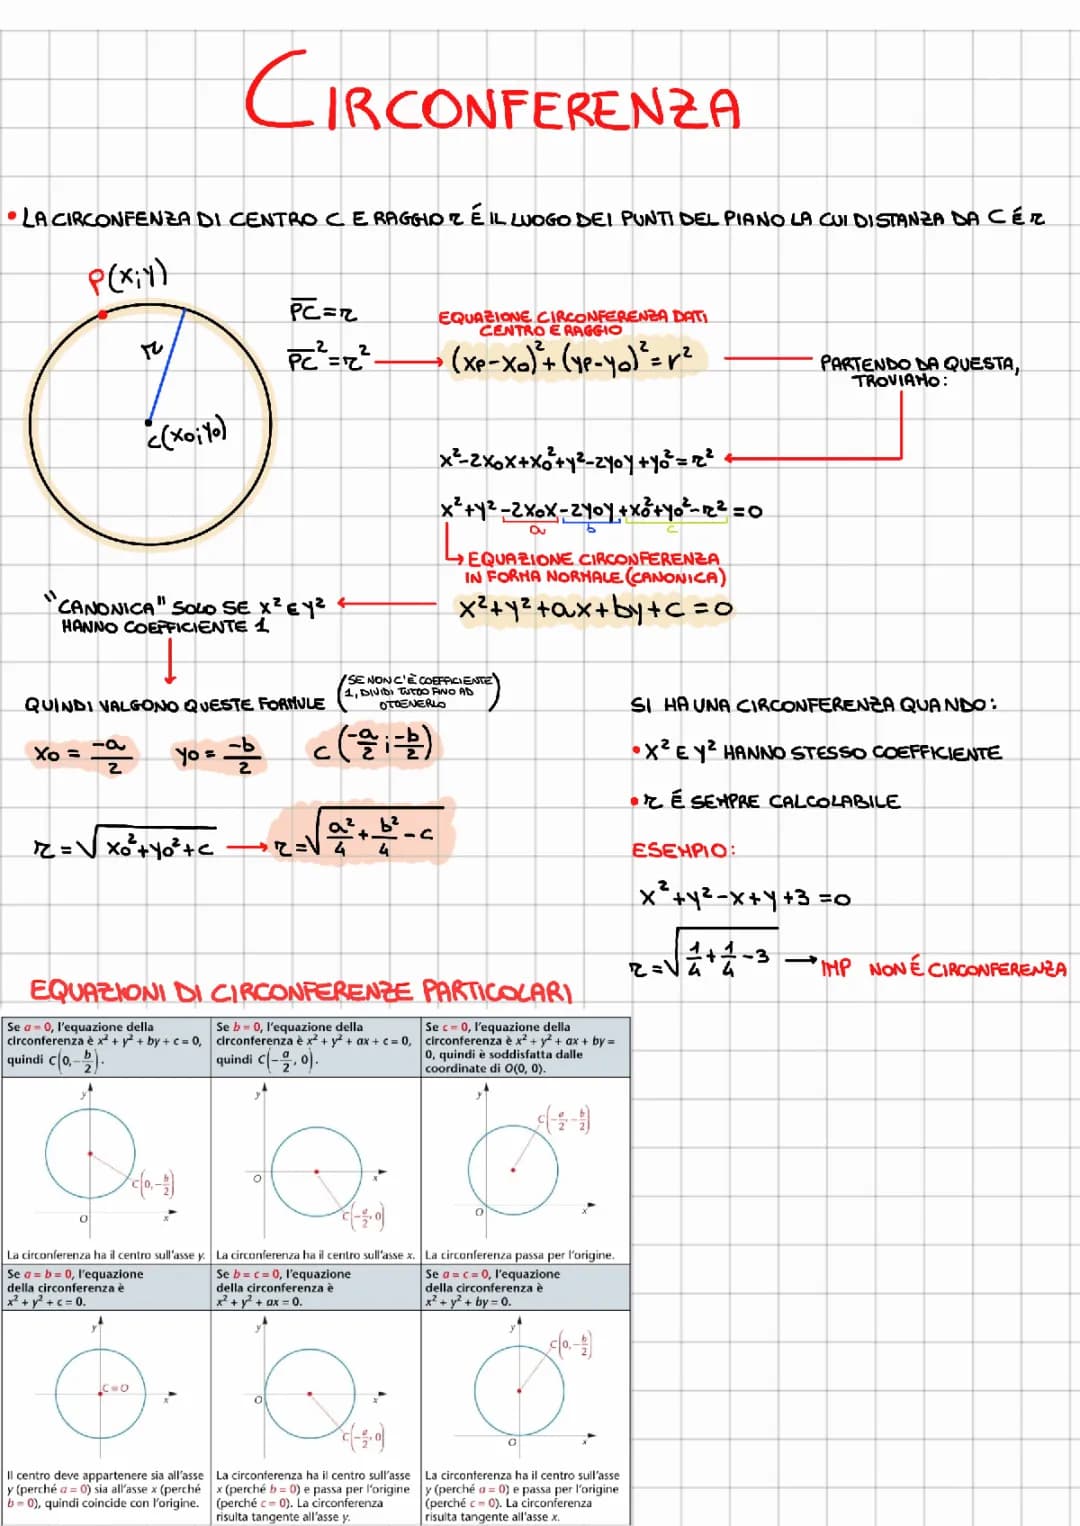 CIRCONFERENZA
• LA CIRCONFENZA DI CENTRO C E RAGGIO r É IL LUOGO DEI PUNTI DEL PIANO LA CUI DISTANZA DA C É r
P(x;y)
r
C(x₀;y₀)
P̅C̅ = r
P̅C̅² = r²
EQUAZIONE CIRCONFERENZA DATI
CENTRO E RAGGIO
(xp-x₀)² + (yp-y₀)² = r²
PARTENDO DA QUESTA,
TROVIAMO:
x²-2x₀x+x₀²+y²-2y₀y+y₀²=r²
x²+y²-2x₀x-2y₀y+x₀²+y₀²-r²=0
a b c
EQUAZIONE CIRCONFERENZA
IN FORMA NORMALE (CANONICA)
x²+y²+ax+by+c=0
"CANONICA" SOLO SE x² E y²
HANNO COEFFICIENTE 1
QUINDI VALGONO QUESTE FORMULE
(SE NON C'È COEFFICIENTE
1, DIVIDI TUTTO FINO AD
OTTENERLO)
x₀ = -a/2 y₀ = -b/2 C(-a/2 ; -b/2)
r = √(x₀²+y₀²+c) → r = √(a²/4 + b²/4 - c)
SI HA UNA CIRCONFERENZA QUANDO:
• x² E y² HANNO STESSO COEFFICIENTE
• r É SEMPRE CALCOLABILE
ESEMPIO:
x²+y²-x+y+3=0
r = √(1/4 + 1/4 - 3) → IMP NON É CIRCONFERENZA
EQUAZIONI DI CIRCONFERENZE PARTICOLARI
Se a = 0, l'equazione della
circonferenza è x² + y² + by + c = 0,
quindi C(0, -b/2).
Se b = 0, l'equazione della
circonferenza è x² + y² + ax + c = 0,
quindi C(-a/2, 0).
Se c = 0, l'equazione della
circonferenza è x² + y² + ax + by =
0, quindi è soddisfatta dalle
coordinate di O(0, 0).
y
C(0, -b/2)
O
x
y
O
x
C(-a/2, 0)
y
C(-a/2, -b/2)
O
x
La circonferenza ha il centro sull'asse y.
La circonferenza ha il centro sull'asse x.
La circonferenza passa per l'origine.
Se a = b = 0, l'equazione
della circonferenza è
x² + y² + c = 0.
Se b = c = 0, l'equazione
della circonferenza è
x² + y² + ax = 0.
Se a = c = 0, l'equazione
della circonferenza è
x² + y² + by = 0.
y
C≡O
x
y
O
x
C(-a/2, 0)
y
C(0, -b/2)
O
x
Il centro deve appartenere sia all'asse
y (perché a = 0) sia all'asse x (perché
b = 0), quindi coincide con l'origine.
La circonferenza ha il centro sull'asse
x (perché b = 0) e passa per l'origine
(perché c = 0). La circonferenza
risulta tangente all'asse y.
La circonferenza ha il centro sull'asse
y (perché a = 0) e passa per l'origine
(perché c = 0). La circonferenza
risulta tangente all'asse x.